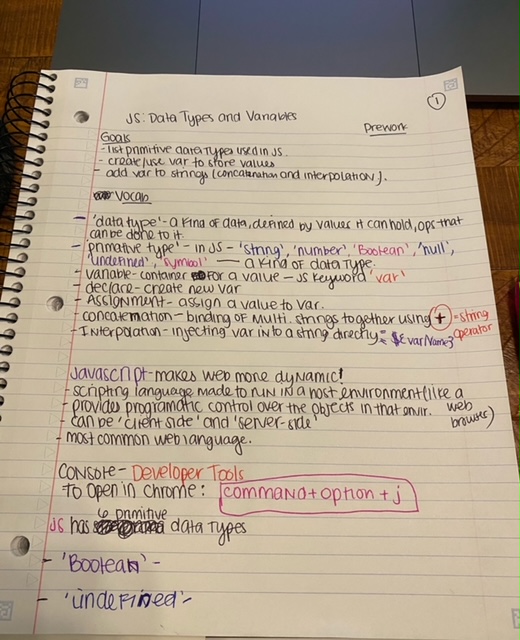 1
JS: Data Types and Variables
Prework
Goals
- list primitive data types used in JS.
- create/use var to store values
- add var to strings (concatenation and interpolation).
Vocab
- 'data type' - a kind of data, defined by values it can hold, ops that
can be done to it.
- 'primative type' - in JS - 'string', 'number', 'Boolean', 'null',
'undefined', 'symbol' — a kind of data type.
- variable - container for a value - JS keyword 'var'
- declare - create new var
- Assignment - assign a value to var.
- concatenation - binding of multi. strings together using + = string
operator
- Interpolation - injecting var into a string directly = ${varName}
Javascript - makes web more dynamic!
- scripting language made to run in a host environment (like a
web browser)
- provides programatic control over the objects in that envir.
- can be 'client side' and 'server-side'
- most common web language.
Console - Developer Tools
To open in chrome: command + option + j
JS has 6 primitive data types
- 'Boolean' -
- 'undefined' -